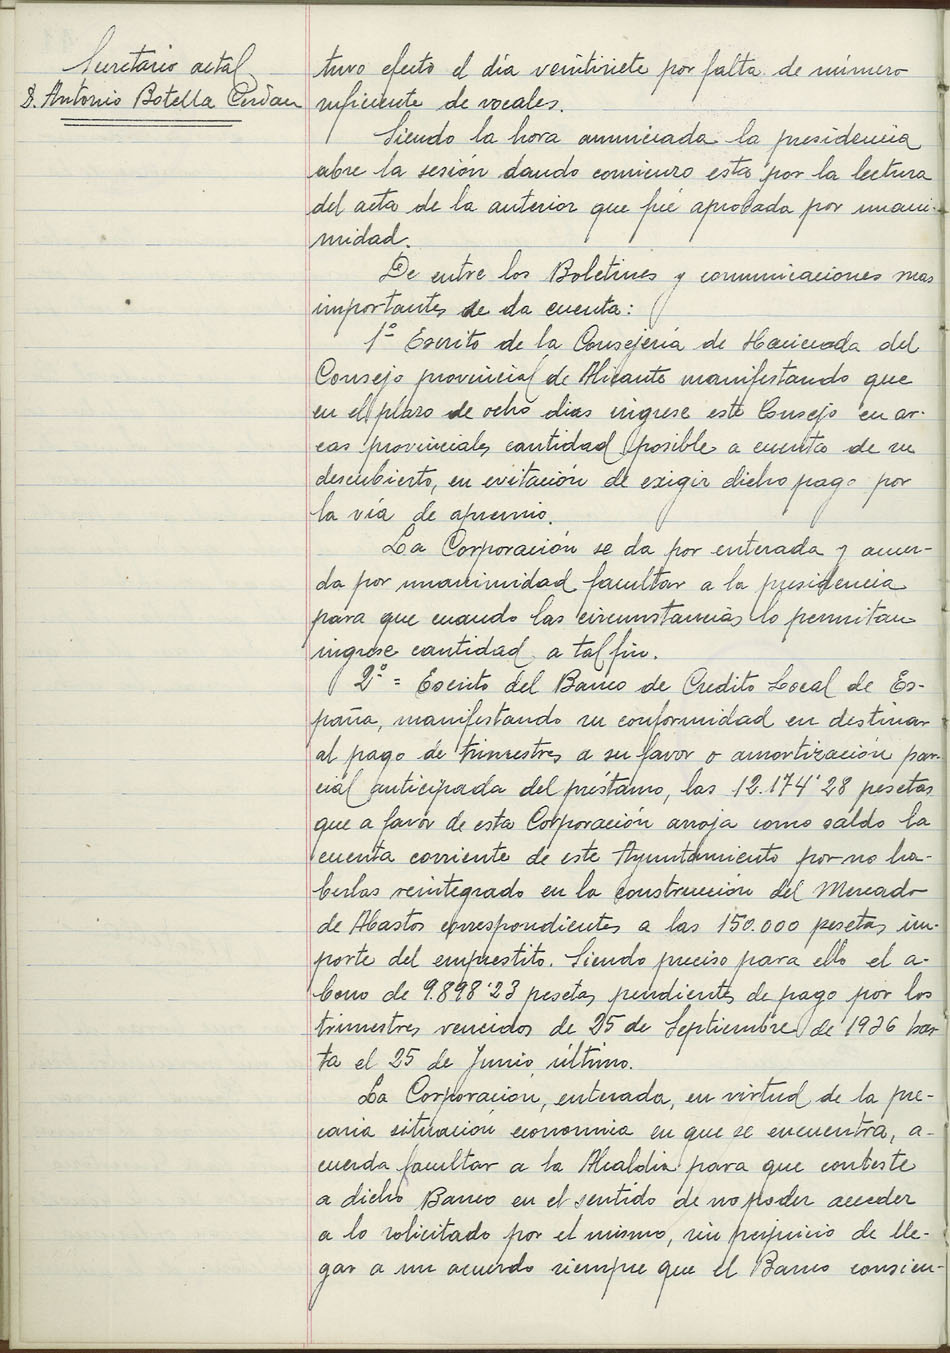 Secretario actal
D. Antonio Botella Cerdan
tuvo efecto el día veintisiete por falta de número
suficiente de vocales.
Siendo la hora anunciada la presidencia
abre la sesión dando comienzo esta por la lectura
del acta de la anterior que fué aprobada por unani-
midad.
De entre los Boletines y comunicaciones mas
importantes se da cuenta:
1º Escrito de la Consejeria de Hacienda del
Consejo provincial de Alicante manifestando que
en el plazo de ocho dias ingrese este Consejo en ar-
cas provinciales cantidad posible a cuenta de su
descubierto, en evitación de exigir dicho pago por
la vía de apremio.
La Corporación se da por enterada y acuer-
da por unanimidad facultar a la presidencia
para que cuando las circunstancias lo permitan
ingrese cantidad a tal fin.
2º = Escrito del Banco de Credito Local de Es-
paña, manifestando su conformidad en destinar
al pago de trimestres a su favor o amortización par-
cial anticipada del préstamo, las 12.174'28 pesetas
que a favor de esta Corporación arroja como saldo la
cuenta corriente de este Ayuntamiento por no ha-
berlas reintegrado en la construcción del Mercado
de Abastos correspondientes a las 150.000 pesetas im-
porte del emprestito. Siendo preciso para ello el a-
bono de 9.898'23 pesetas pendientes de pago por los
trimestres vencidos de 25 de Septiembre de 1936 has-
ta el 25 de Junio último.
La Corporación, enterada, en virtud de la pre-
caria situación economia en que se encuentra, a-
cuerda facultar a la Alcaldia para que conteste
a dicho Banco en el sentido de no poder acceder
a lo solicitado por el mismo, sin perjuicio de lle-
gar a un acuerdo siempre que el Banco consien-